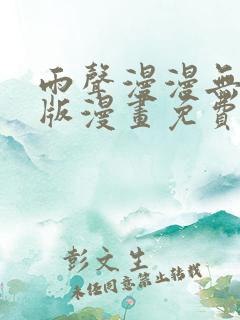 雨聲漫漫無
版漫畫免費
彭文生
未经同意禁止转载